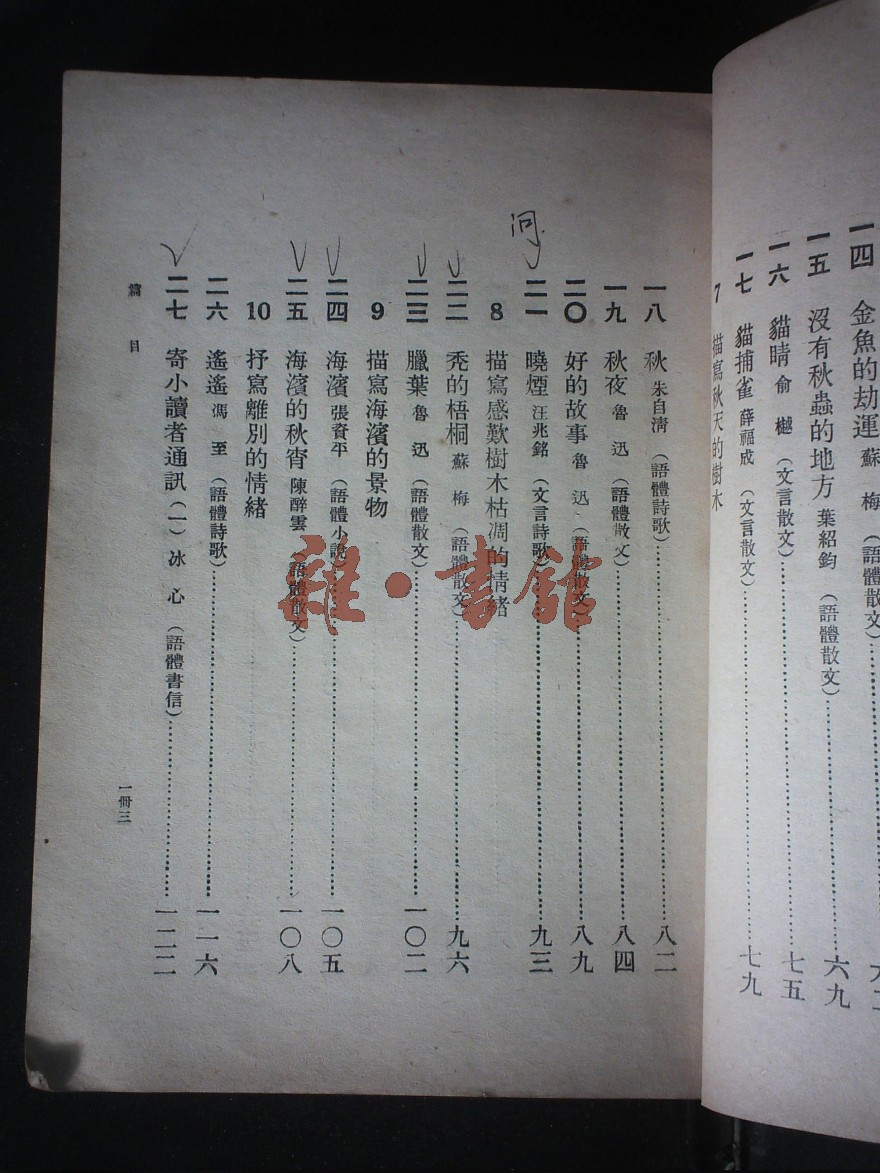 一四 金魚的劫運 蘇梅 (語體散文)
一五 沒有秋蟲的地方 葉紹鈞 (語體散文) 六九
一六 貓睛 俞樾 (文言散文) 七五
一七 貓捕雀 薛福成 (文言散文) 七九
7 描寫秋天的樹木
一八 秋 朱自淸 (語體詩歌) 八二
一九 秋夜 魯迅 (語體散文) 八四
二〇 好的故事 魯迅 (語體散文) 八九
二一 曉煙 汪兆銘 (文言詩歌) 九三
8 描寫感歎樹木枯凋的情緒
二二 禿的梧桐 蘇梅 (語體散文) 九六
二三 臘葉 魯迅 (語體散文) 一〇二
9 描寫海濱的景物
二四 海濱 張資平 (語體小說) 一〇五
二五 海濱的秋宵 陳醉雲 (語體散文) 一〇八
10 抒寫離別的情緒
二六 遙遙 馮至 (語體詩歌) 一一六
二七 寄小讀者通訊(一) 冰心 (語體書信) 一二二
篇目
一冊三
雜·書館